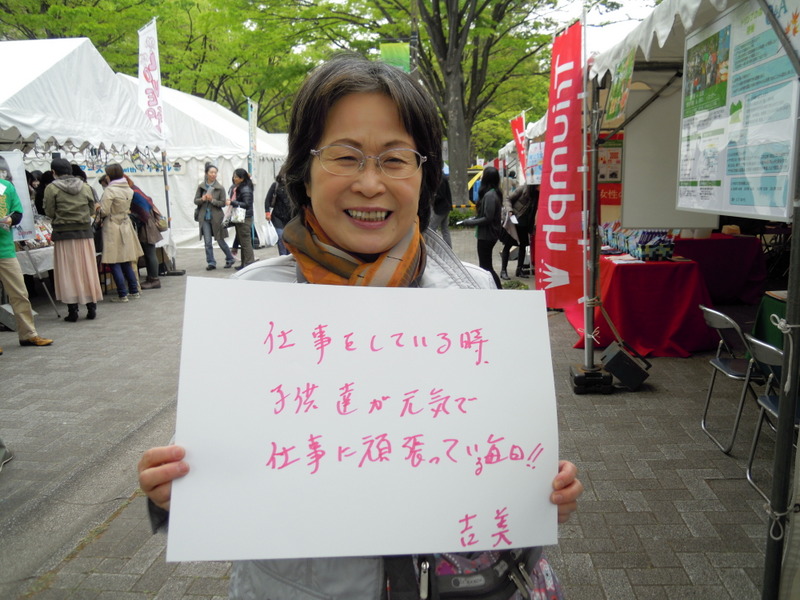 仕事をしている時、
子供達が元気で
仕事に頑張っている毎日!!
吉美
Triumph